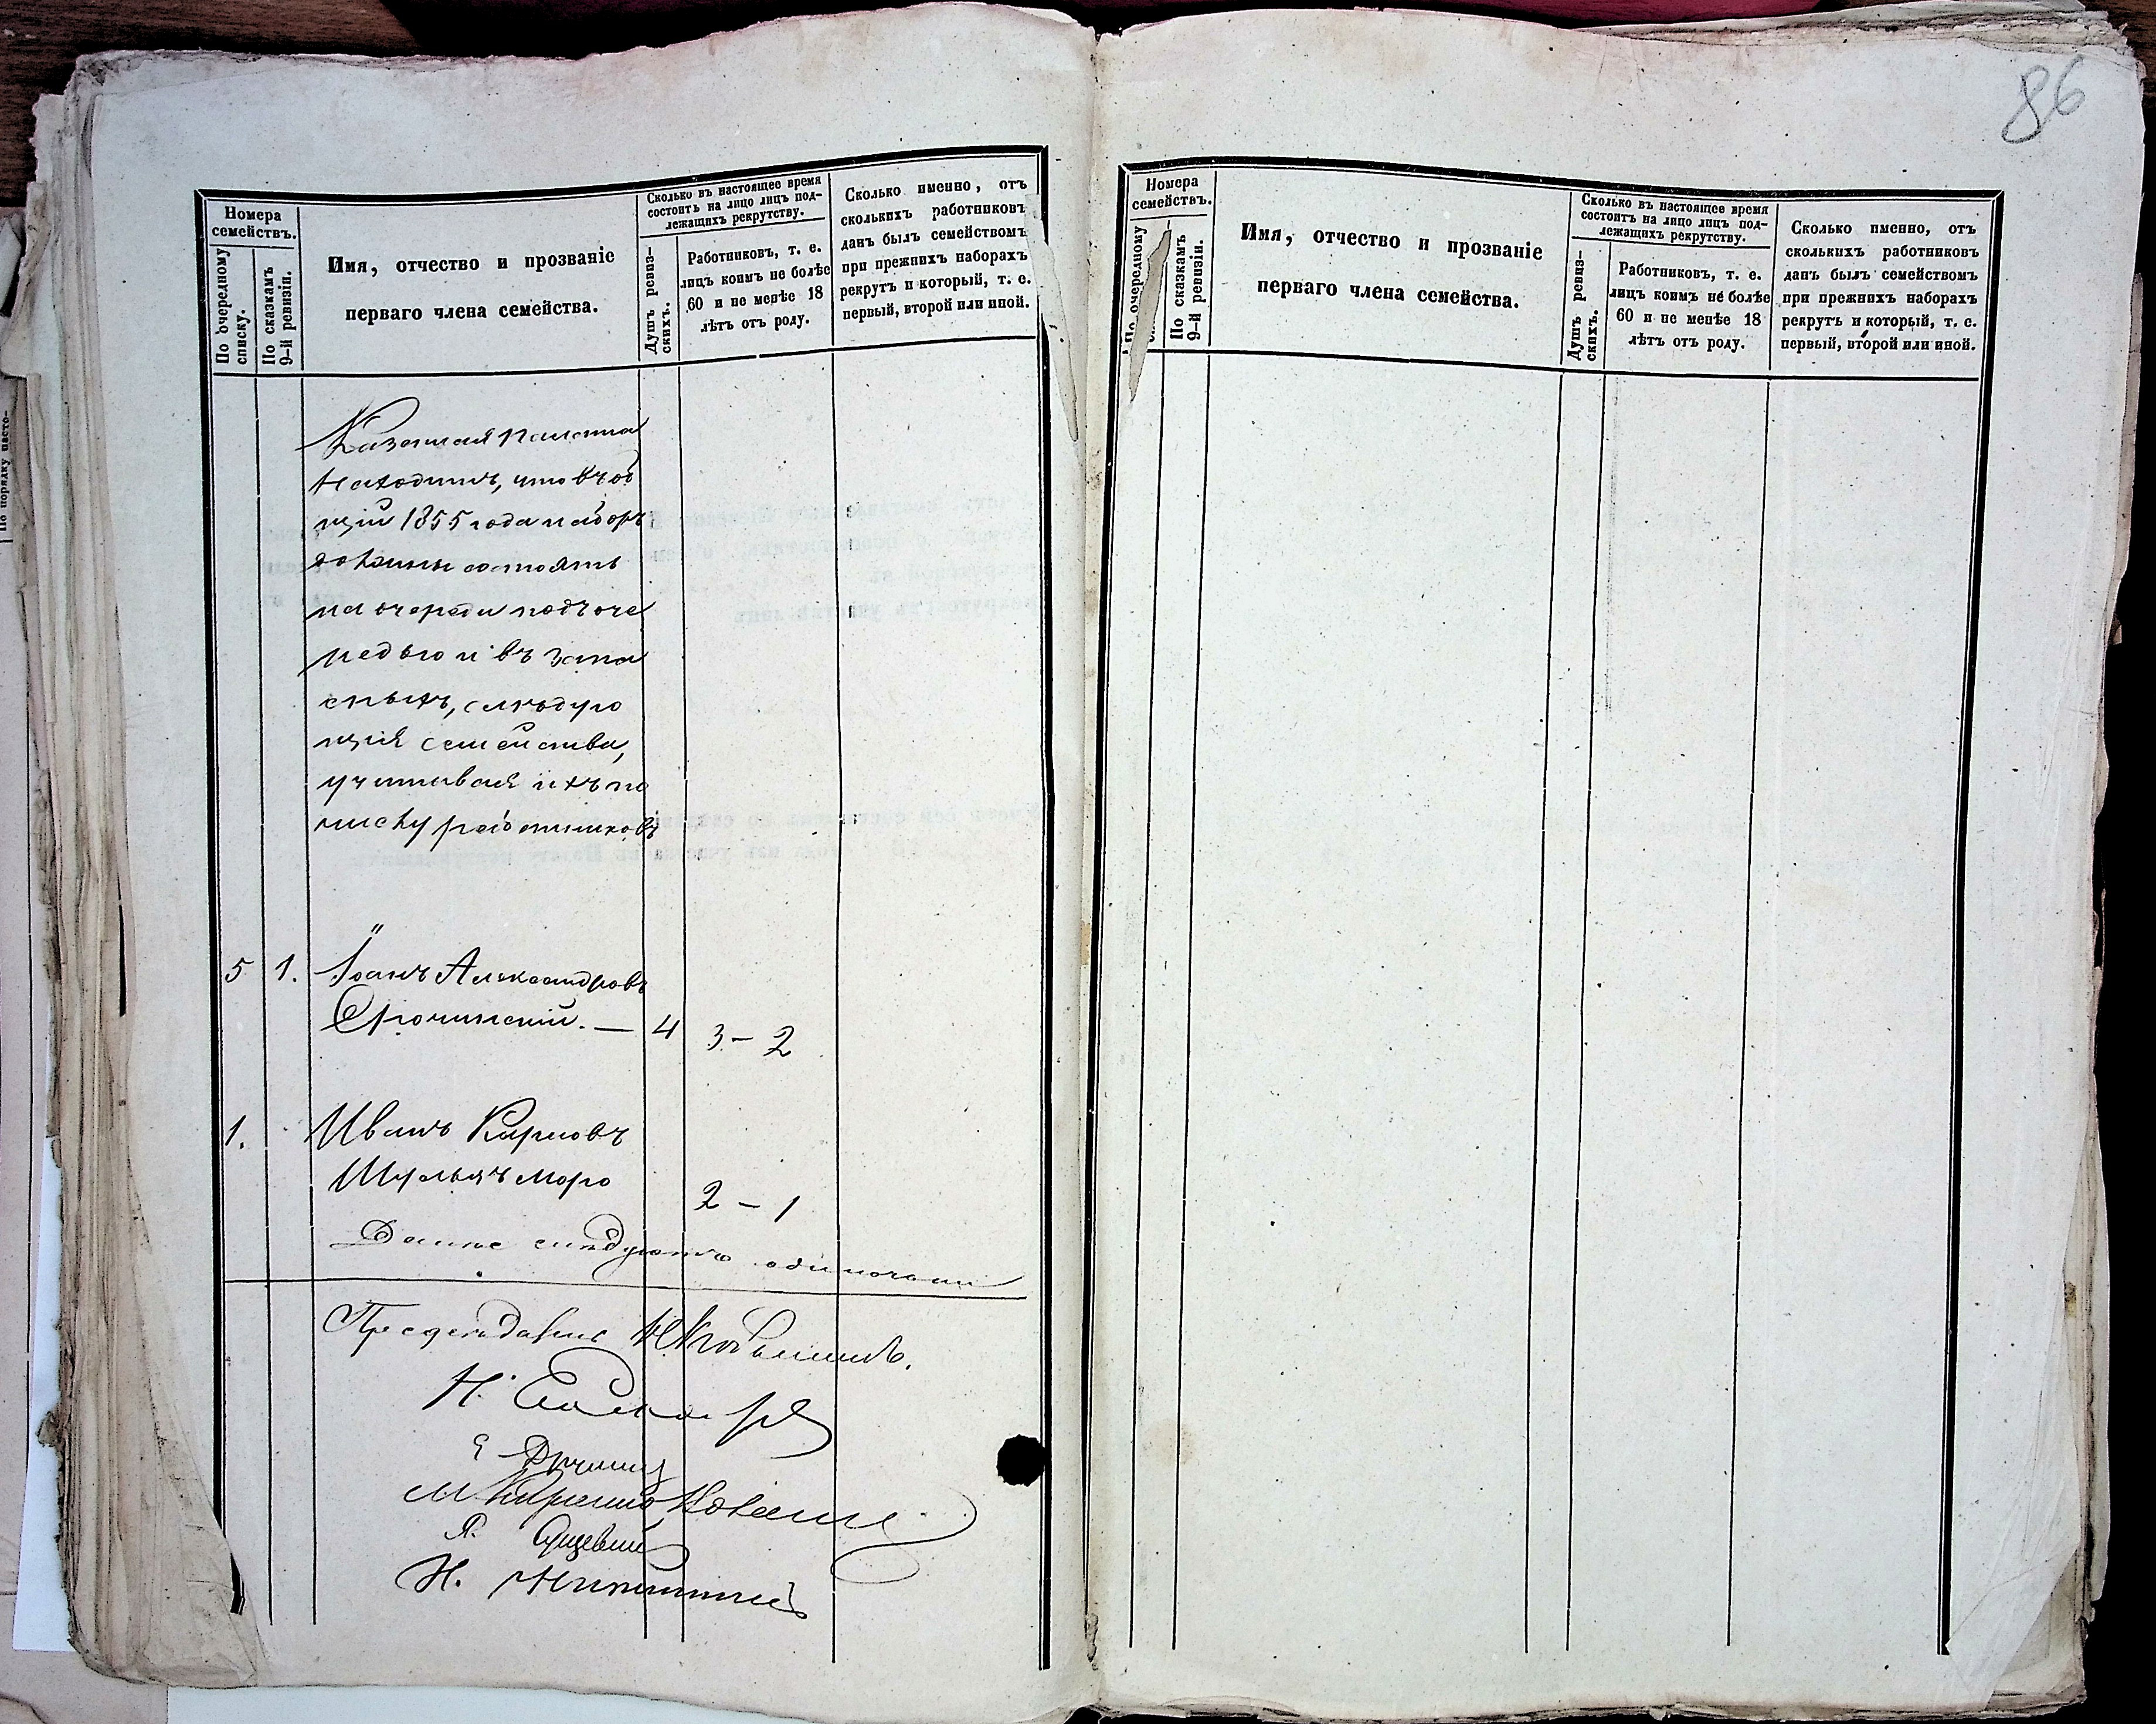 86
Номера
семействъ.
По очередному
списку.
По сказкамъ
9-й ревизіи.
Имя, отчество и прозваніе
перваго члена семейства.
Сколько въ настоящее время
состоитъ на лицо лицъ под-
лежащихъ рекрутству.
Душъ ревиз-
скихъ.
Работниковъ, т. е.
лицъ коимъ не болѣе
60 и не менѣе 18
лѣтъ отъ роду.
Сколько именно, отъ
сколькихъ работниковъ
данъ былъ семействомъ
при прежнихъ наборахъ
рекрутъ и который, т. е.
первый, второй или иной.
Казенная палата
находитъ, что въ об
щій 1855 года наборъ
должны состоять
на очереди подъ оче
редью и въ запа
сныхъ, слѣдую
щія семейства,
учитывая ихъ по
числу работниковъ
5 1. Іоанъ Александровъ
4 3 – 2
1. Иванъ Карповъ
2 – 1
Далѣе слѣдуютъ одиночки
Предсѣдатель
Номера
семействъ.
По очередному
По сказкамъ
9-й ревизіи.
Имя, отчество и прозваніе
перваго члена семейства.
Сколько въ настоящее время
состоитъ на лицо лицъ под-
лежащихъ рекрутству.
Душъ ревиз-
скихъ.
Работниковъ, т. е.
лицъ коимъ не болѣе
60 и не менѣе 18
лѣтъ отъ роду.
Сколько именно, отъ
сколькихъ работниковъ
данъ былъ семействомъ
при прежнихъ наборахъ
рекрутъ и который, т. е.
первый, второй или иной.